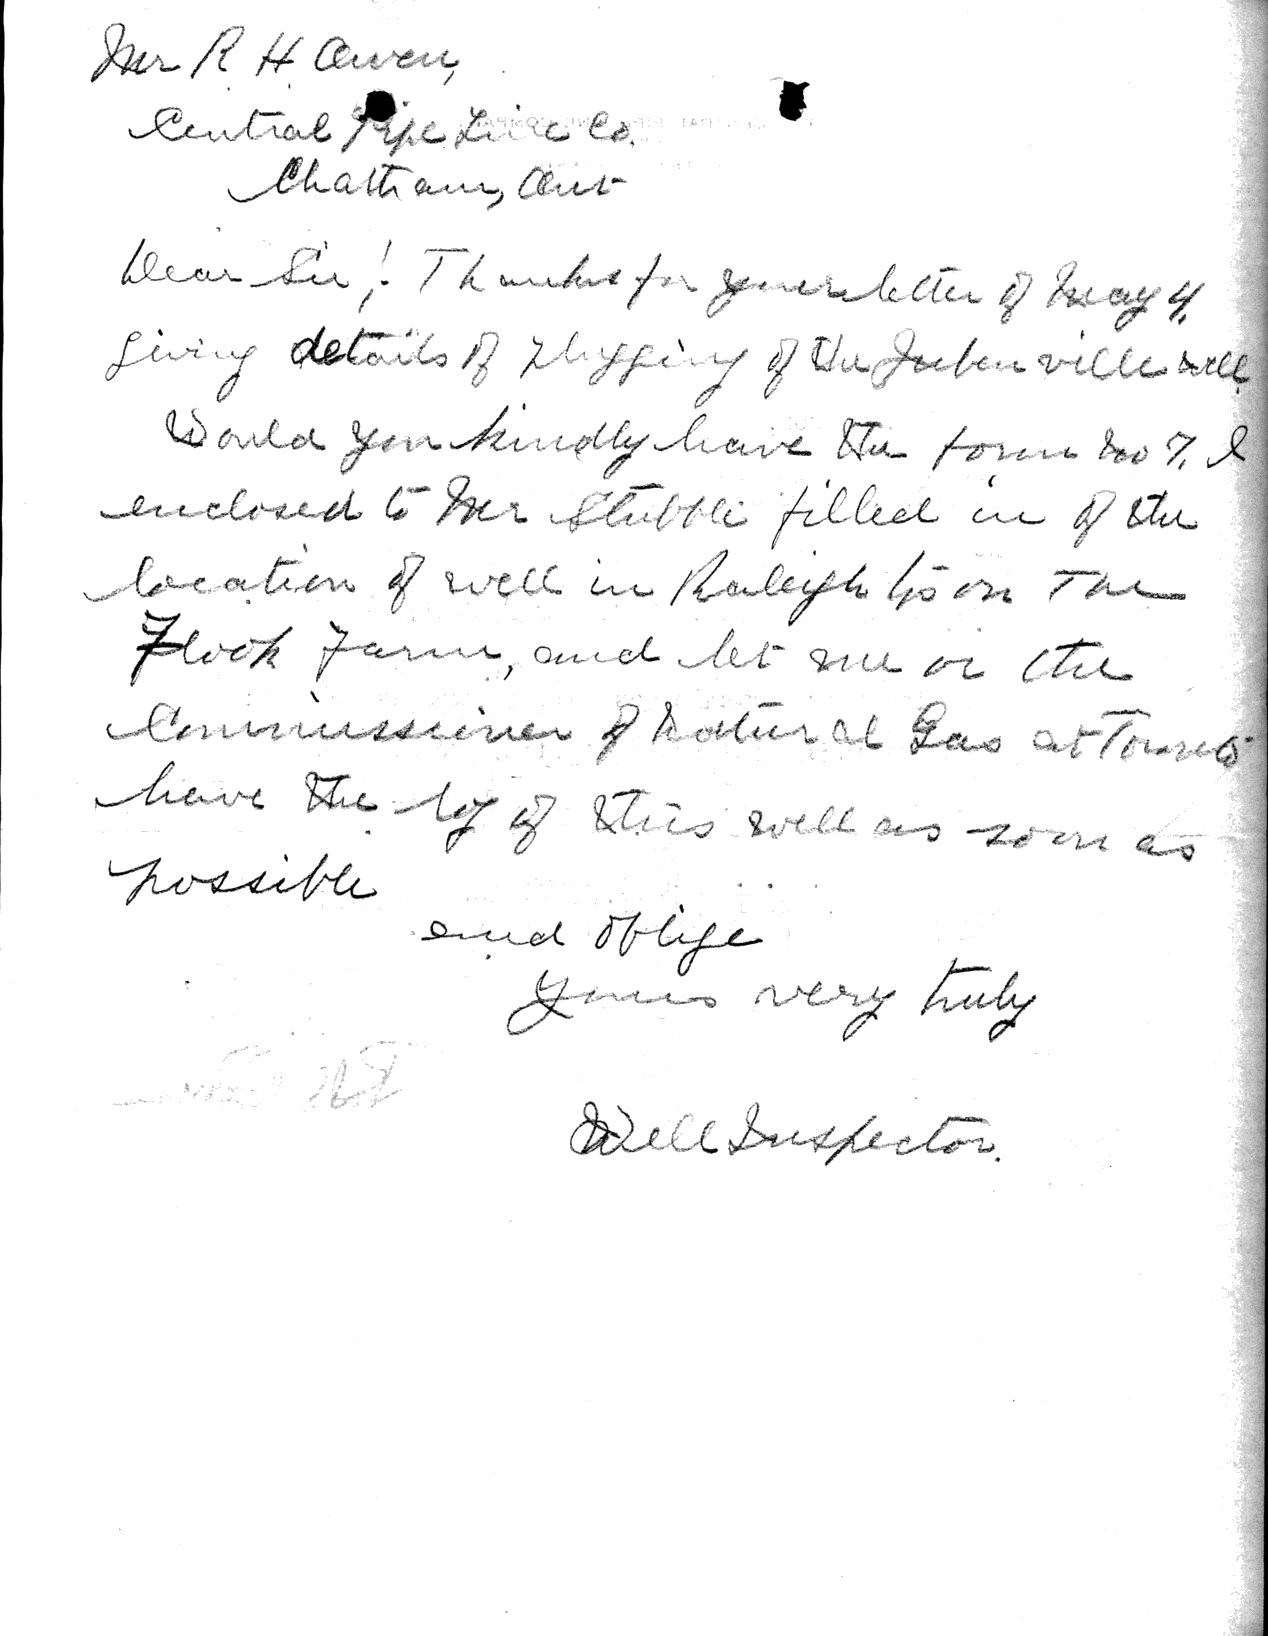 Mr R H Owen,
Central Pipe Line Co.
Chatham, Ont
Dear Sir,! Thanks for your letter of May 4,
giving details of plugging of the Jeken ville well
Would you kindly have the form No 7, I
enclosed to Mr Stubbli filled in of the
location of well in Raleigh on The
Flook Farm, and let me or the
Commissioner of Natural Gas at Toronto
have the log of this well as soon as
possible
and oblige
Yours very truly
Well Inspector.